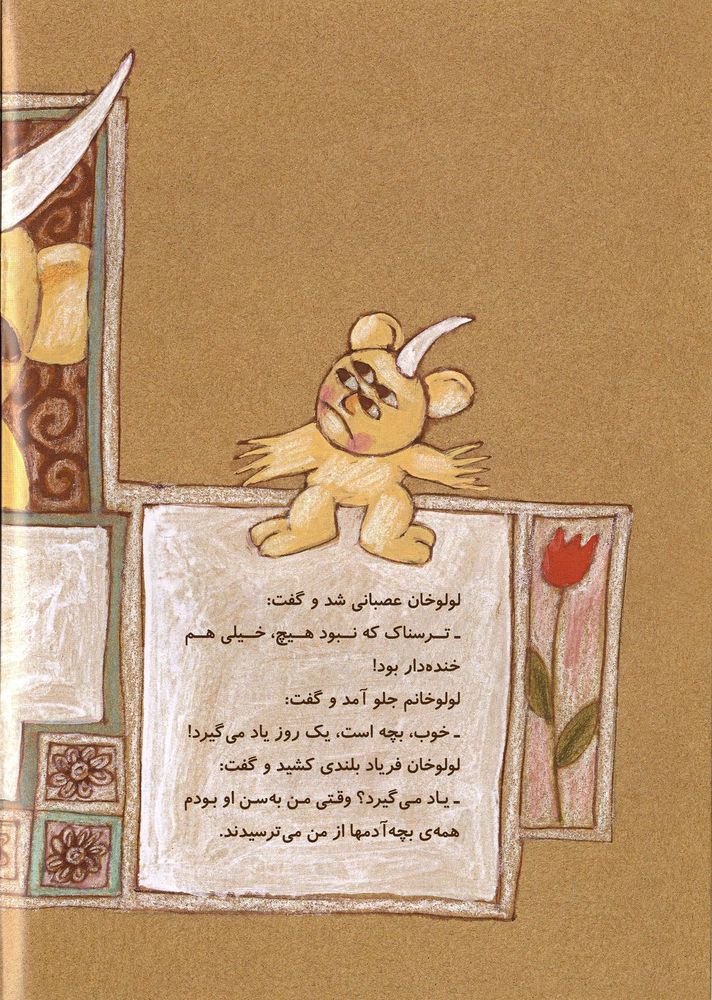 لولوخان عصبانی شد و گفت:
ـ تـرسناک که نـبود هیـچ، خـیلی هـم
خنده‌دار بود!
لولوخانم جلو آمد و گفت:
ـ خوب، بچه است، یک روز یاد می‌گیرد!
لولوخان فریاد بلندی کشید و گفت:
ـ یـاد مـی‌گیرد؟ وقـتی مـن به‌سـن او بـودم
همه‌ی بچه‌آدمها از من می‌ترسیدند.